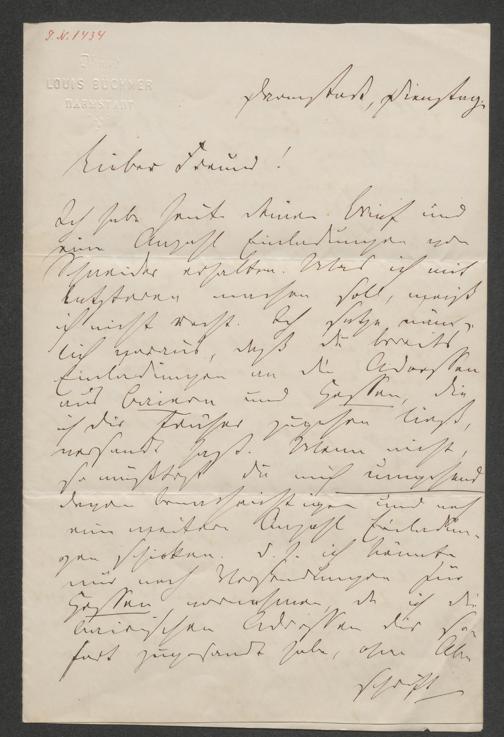 J.N. 1434
LOUIS BÜCHNER
DARMSTADT
Darmstadt, Dienstag.
Lieber Freund!
Ich habe heute deinen Brief und
eine Anzahl Einladungen von
Schneider erhalten. Was ich mit
Letzteren machen soll, weiß
ich nicht recht. Ich setze näm-
lich voraus, daß du bereits
Einladungen an die Adressen
aus Baiern und Hessen, die
ich dir früher zugehen ließ,
versandt hast. Wenn nicht,
so müßtest du mich umgehend
davon benachrichtigen und noch
eine weitere Anzahl Einladun-
gen schicken. D. h. ich könnte
nur noch Versendungen für
Hessen vornehmen, da ich die
bairischen Adressen dir so-
fort zugesandt habe, ohne Ab-
schrift